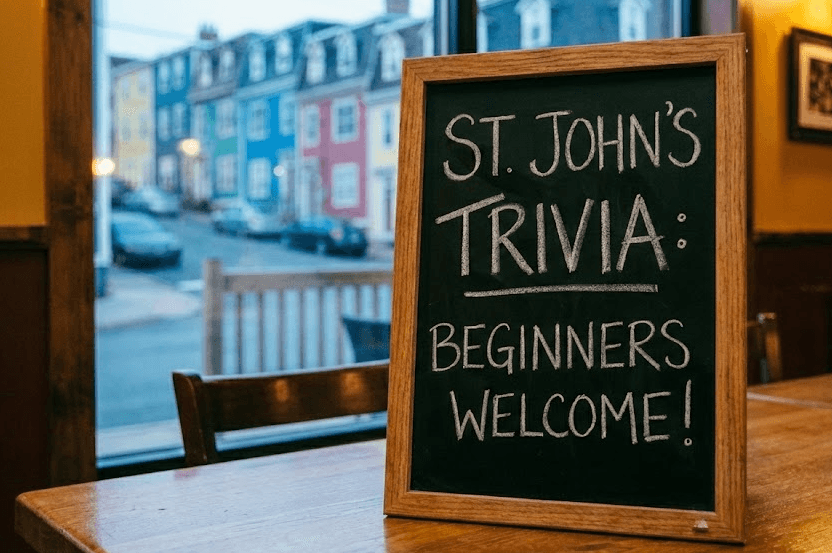 ST. JOHN'S
TRIVIA:
BEGINNERS
WELCOME!